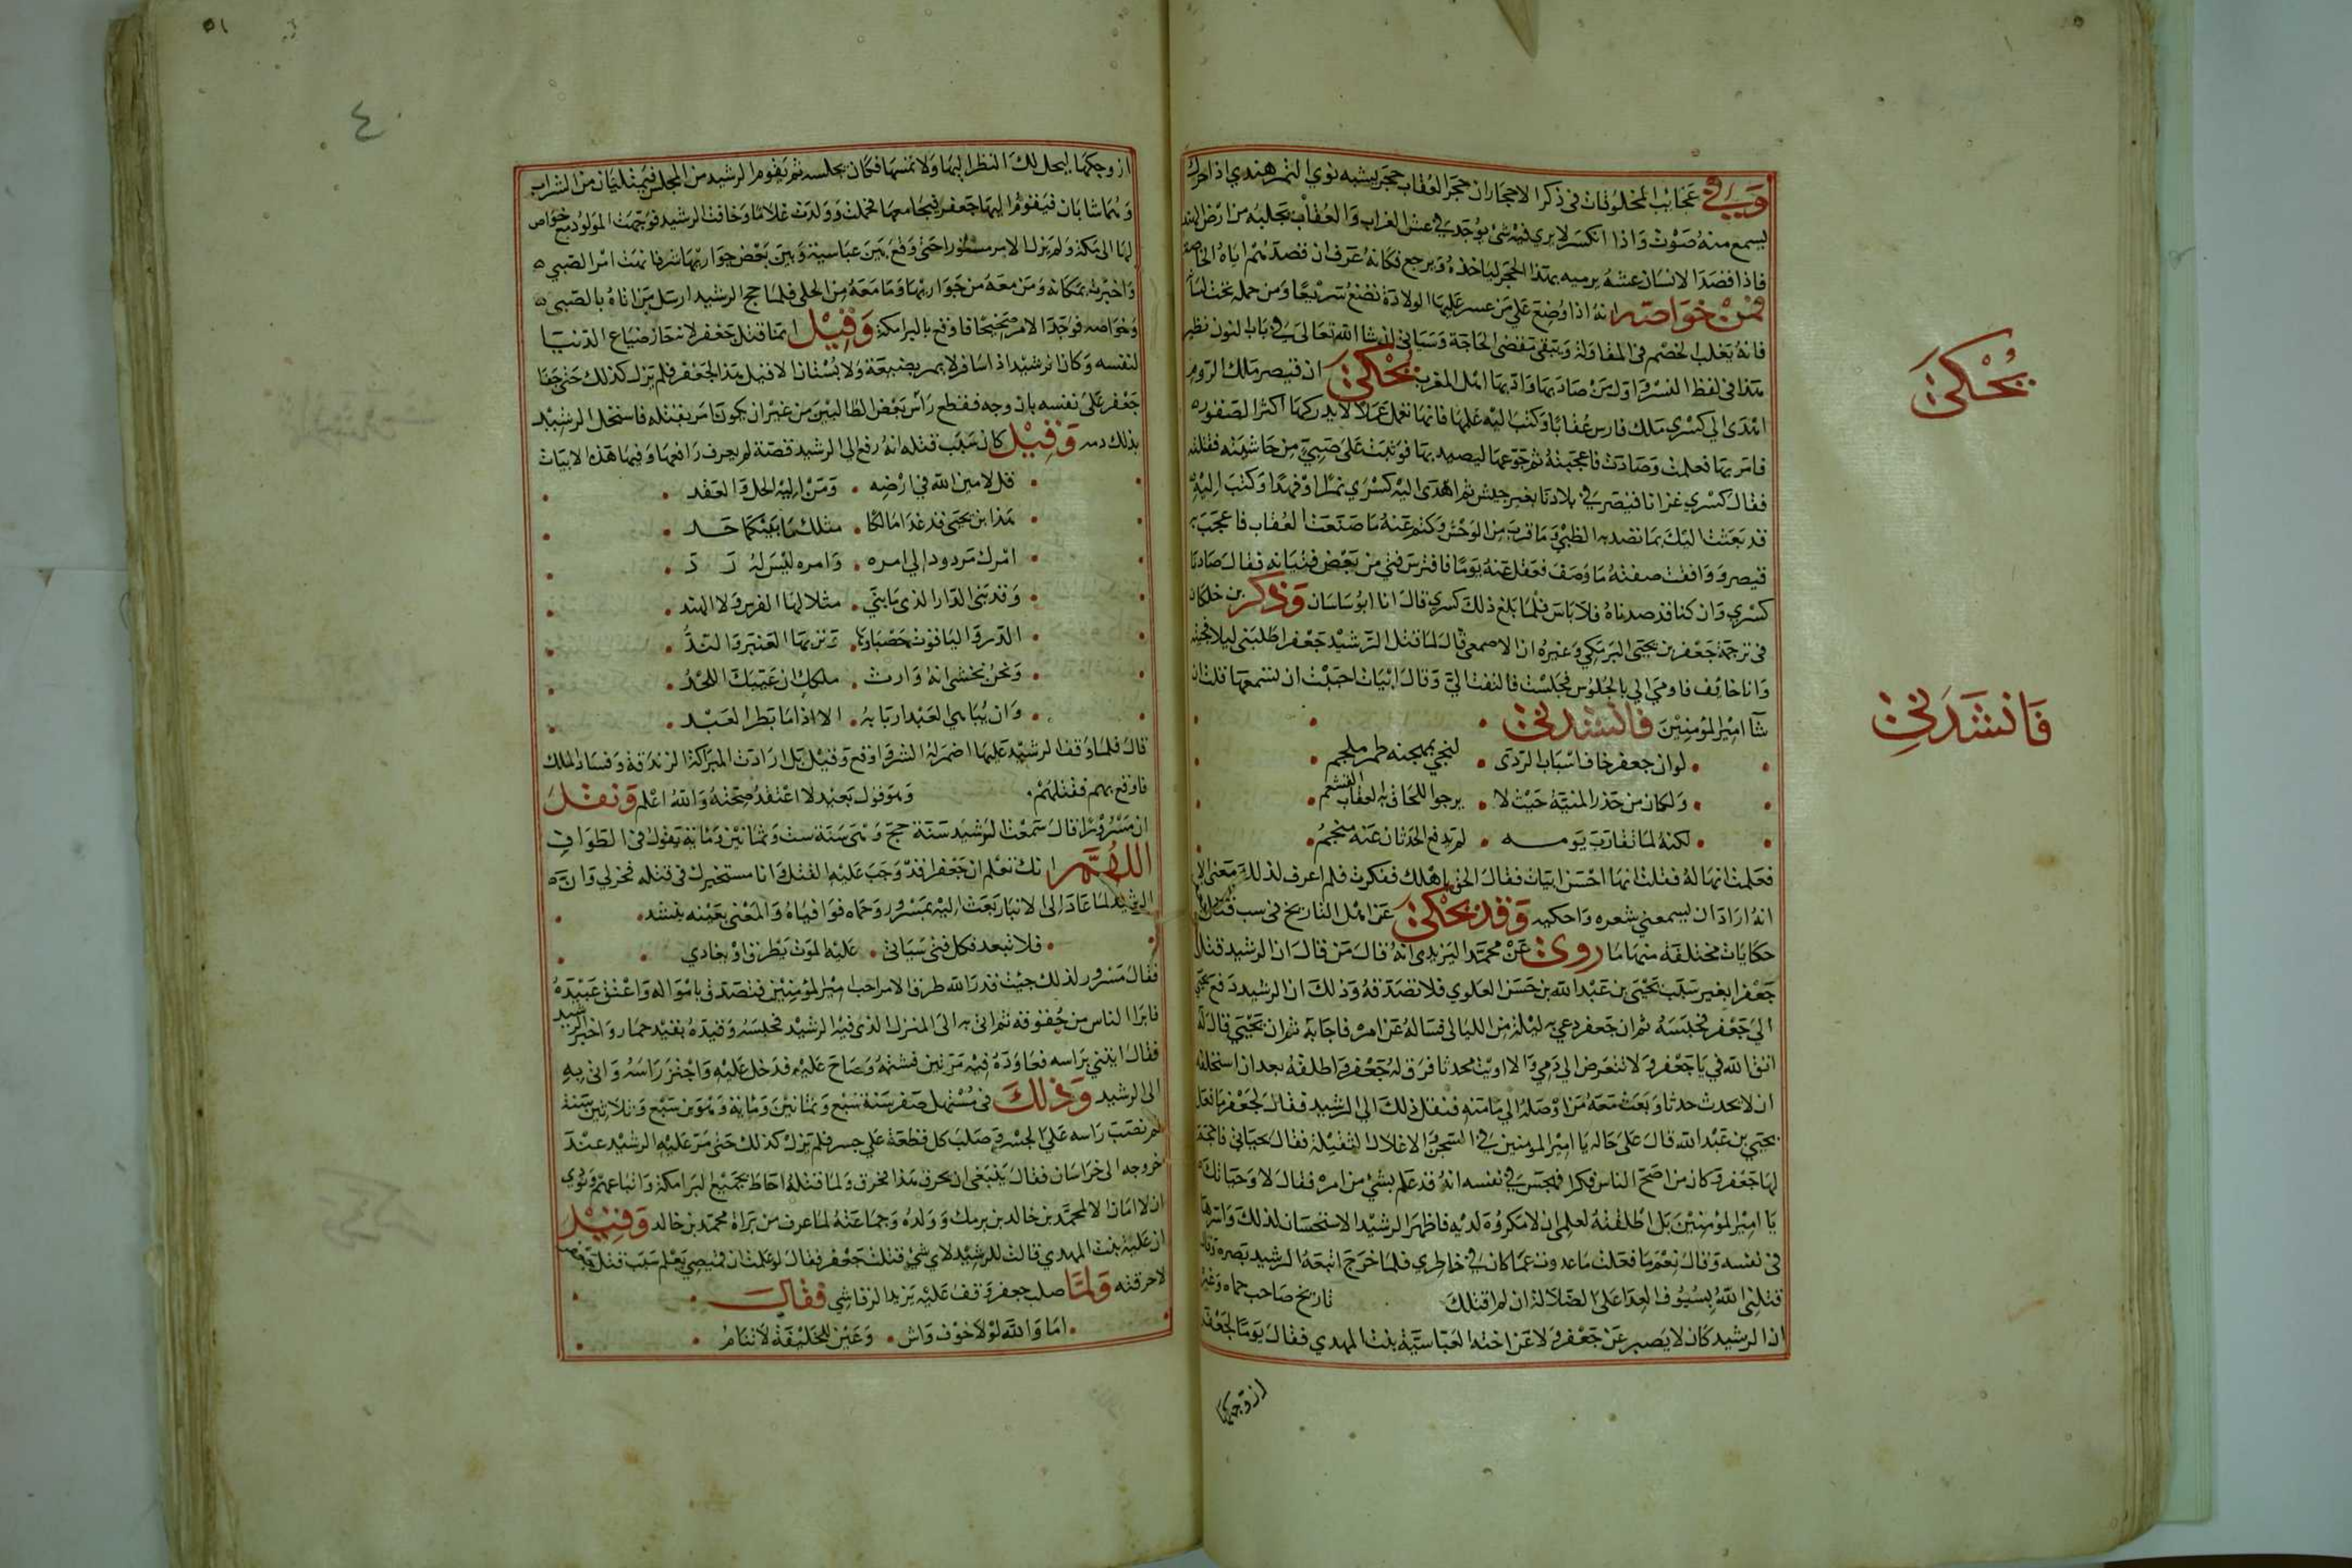 وَفي عَجَائِب المخلوقات في ذكر الاحجار ان حجر العُقاب حجر يشبه نوي التمر هندي اذا حرك
يسمع منهُ صَوْت وَاذا انكسر لا يري فيه شئ يوُجَد في عش الغراب وَالعُقاب تجلبهُ من ارَض الهند
فاذا قصَدَ الانسَان عشهُ يرميه بهذا الحجر لياخذهُ وَيرجع فكانهُ عَرف ان قصدهُم اياهُ لخاصَة
فمنْ خوَاصّه انهُ اذا وُضِعَ عَلي مَن عسر عليها الولادة تضَع سَريعًا وَمن حمله تحت لسانه
فانهُ يَغلب الخصم في المقاولة وَيبقي تقضى الحَاجَة وَسَياتي ان شا الله تعَالى في باب النون نظير
هذا في لفظ النسر وَاول مَن صَادَ بها وَادبها اهل المغرب يُحْكىَ ان قيصر مَلك الروم
اهدَى الي كسْرى مَلك فارس عُقابًا وَكتبَ اليْه عَلمها فانها تعمل عَملاً لا يدركهَا اكثر الصقور
فامَر بهَا فعلمت وَصَادَت فاعجبَتهُ ثم جَوعهَا ليصيد بهَا فوَثبَت عَلى صَبِيّ مِن حَاشيته فقتلته
فقالَ كسْري غزانا قيْصَر في بلادنا بغير جيش ثم اهْدَى اليْه كسْري نمرًا وَفهدًا وَكتبَ اليْه
قد بعَثت اليْكَ بما تصْيد به الظبْي وَمَا قربَ من الوَحْش وَكتم عَنهُ مَا صَنعَت العُقاب فاعجبَ به
قيصر وَوَافقت صفتهُ مَا وَصَفَ فغفل عَنهُ يَومًا فافترسَ فتى من بَعْض فتيَانه فقالَ صَادنا
كسْري وَان كنا قد صدناهُ فلا بَاسَ فلما بلغ ذلكَ كسري قال انا ابُو سَاسَان وَذكر بن خلكان
في ترجَمة جَعْفر بن يحيَى البرمكي وَغيرهُ ان الاصمعى قال لما قتل الرشيد جَعْفر اطلبَني ليلا فجئته
وَانا خائِف فاومى الي بالجُلوُس فجلسْت فالتفت اليّ وَقال ابيَات احبَبْت ان تسْمعهَا قلت ان
شآ امير المُؤمِنِيْنَ فانشدني
لوان جعفر خاف اسْبَابَ الرّدَى . لنجي بمهجته طمر ملجم
وَلكان من حَذر المنيّة حَيْث لا . يرجوا اللحَاق به العقاب القشعم
لكنهُ لما تقارَبَ يَومـه . لم يَدفع الحَدثان عَنه منجمُ
فعَلمت انهَا لهُ فقلت انهَا احْسَن ابيَات فقالَ الحق باهلك ففكرت فلم اعرف لذلكَ مَعنى الا
انهُ ارَادَ ان يسمعني شعره وَاحكيه وَقد يُحْكى عَن اهل التاريخ في سبب قتل
حكايات مختلفة منهَا مَا رُوي عَن محمَّد اليَزيدى انهُ قالَ مَن قالَ ان الرشيد قتل
جَعْفرًا بغير سَبَب يَحْيَى بن عَبْد الله بن حَسَن العلوي فلا تصَدقه وَذلكَ ان الرشيد دَفع يحيَى
اليَ جَعْفر فحَبَسَهُ ثم ان جَعفر دعي به ليْلة من الليَالي فسَالهُ عَن امره فاجَابهُ ثم ان يَحْيَى قالَ لهُ
اتق الله في يَا جَعْفر وَلا تتعَرض الي دَمي وَالا اويت محدثا فرَق لهُ جَعْفر وَاطلقهُ بعد ان استحلفه
ان لا يحدث حدثا وَبعَث مَعَهُ مَن اوْصَلهُ الي مَامنه فنقل ذلكَ الي الرشيد فقالَ لجَعْفر مَا فعَل
يَحيي بن عَبْد الله قالَ عَلى حَاله يَا امير المومنين في السّجن وَالاغلال الثقيْلة فقالَ بحيَاتي فاحجم
لهَا جَعْفر وَكانَ من اصَحّ الناس فكرا فهجسَ في نفسه انهُ قد عَلم بشئ من امره فقالَ لا وَحيَاتكَ
يَا امِيْر المؤمِنِيْن بَل اطلقتهُ لعلمي ان لا مَكرُوُهَ لديْه فاظهر الرشيْد الاستحسَان لذلك وَاسَرهَا
في نفسه وَقالَ نِعْم مَا فعَلت مَا عدوت عَمّا كان في خاطري فلما خرَجَ اتبعَهُ الرشيد بَصَره وَقال
قتلني اللهُ بِسُيُوف العِدَا عَلى الضّلالة ان لم اقتلكَ تاريخ صَاحب حماه وَغيره
ان الرشيد كان لا يَصبر عَن جَعْفر وَلا عَن اخته العَبّاسَيّة بنت المهدي فقالَ يَومًا لجَعْفر
ازوجكها
يُحْكىَ
فَانْشَدَنِي
٥١
٤
ازوجكهَا ليحل لكَ النظر اليهَا وَلا تمسهَا فكان يجلسه ثم يَقوم الرشيد من المجلس فيمتليان من الشراب
وَهُما شابان فيَقوُمُ اليهَا جَعفر فيجَامعهَا فحَملت وَوَلدَت غلامًا وَخافت الرشيد فوَجّهَت المولوُد مع خوَاص
لهَا الى مَكة وَلم يَزل الامر مستورا حَتى وَقعَ بَين عَباسية وَبينَ بَعْض جوَارِيهَا شر فانهَت امْر الصَبي
وَاخبرت بمَكانه وَمَن معَهُ من جَوَاريهَا وَمَا مَعَهُ من الحلى فلمّا حج الرشيد ارسَل مَن اتاهُ بالصَبي
وَخوَاصه فوَجَدَ الامر صَحيْحًا فاوْقع بالبرامكة وَقيْل انما قتل جعفر لانه حَاز ضيَاع الدنيَا
لنفسه وَكان الرشيد اذا سَافر لا يمر بضيعَة وَلا بُسْتان الا قيل هَذا لجَعْفر فلم يَزل كذلك حَتى جَفا
جَعْفر عَلى نفسه بان وجه فقطع رَاسَ بَعْض الطالبيينَ من غير ان يكون امر بقتله فاستحل الرشيد
بذلك دمه وَقيْل كانَ سَبَب قتله انهُ رفع الى الرشيد قصّة لم يعرف رَافعهَا وَفيهَا هَذه الابيَات
قل لامين الله في ارْضه . وَمَنْ اليْه الحل وَالعَقد
هَذا ابن يَحْيَى قد غدَا مَالكًا . مثلكَ مَا بَيْنكمَا حَـد
امْرك مَردود الي امـره . وَامره ليْسَ لهُ رَد
وَقد بَنى الدّار الذي مَا بني . مثلا لهَا الفرس وَلا الهند
الدّر وَاليَاقوُت حَصْبَاوها . وَتربهَا العَنبر وَالنّدُّ
وَنحنُ نخشى انهُ وَارث . ملككَ ان غَيّبَك اللحْدُ
وَان يُبَاهي العَبْد اربَابهُ . الا اذا مَا بَطر العَبْـد
قالَ فلمّا وَقف الرشيْد عَليهَا اضمرَ لهُ الشر وَاوقع وَقيْل بَل ارَادَت البَرَامكة الزندَقة وَفسَاد الملك
فاوْقع بهم فقتلهُمْ . وَهوَ قوْل بَعيْد لا اعْتقدُ صحّتهُ وَاللهُ اعْلم وَنقلَ
ان مَسْرُوْرًا قالَ سَمعْت الرشيد سَنَة حجّ وَهيَ سَنَة ست وَثمانيْن وَمَاية يَقوُلُ في الطوَاف
اللّهُمَّ انكَ تعْلم ان جَعْفرا قدْ وَجَبَ عَليْه القتْل وَانا مستخيرك في قتله فخر لي وَانّ
الرشيد لما عَادَ الى الانبار بَعَث اليْه بمَسْرُور وَحماه فوَافيَاهُ وَالمغنّى يغَنّيه بنشد
فلا تبعد فكل فتى سَيَاتي . عَليْه المَوْت يَطْرق اوْ يغادي
فقالَ مَسْرور لذلكَ جئت قد رَالله طرفا لامر اجب امِيْر المؤمِنِيْن فتصَدق بامْوَاله وَاعْتق عَبيدَهُ
فابرَا الناس من حُقوقه ثم اتي به الى المنزل الذي فيْه الرشيد فحبَسَهُ وَقيدَهُ بقيْد حمَار وَاخبر الرشيد
فقالَ ايتني برَاسه فعَاوَدَهُ فيه مَرّتين فشتمَهُ وَصَاحَ عَليْه فدَخل عَليْه وَاجتزّ رَاسَهُ وَاتي بِه
الى الرشيد وَذلك في مُسْتهل صَفر سَنة سَبع وَثمانيْن وَمَاية وَهُوَ بن سَبْع وَثلاثِين سَنة
ثم نصَبَ رَاسه عَليَ الجسْر وَصَلبَ كل قطعَة عَلي جسر فلم يَزل كذلكَ حَتى مَرّ عَليْه الرشيْد عنْدَ
خروجه الى خرَاسَان فقالَ يَنبَغي ان يحرق هَذا فحُرق وَلما قتلهُ احَاط بجَميْع البَرامكة وَاتباعهم وَنوُدي
ان لا امَان الا لمحمّد بن خالد بن برمك وَوَلدهُ وَجمَاعَتهُ لما عرف من بَرَاة محمّد بن خالد وَقيْل
ان علية بنت المهدي قالت للرشيْد لاي شئ قتلت جَعْفر فقالَ لو علمت ان قميصي يَعْلم سَبَب قتله
لاحرقته وَلمّا صلب جعفر وَقفَ عَليْه يزيد الرقاشي فقالَ
امَا وَالله لوْلا خوْف وَاش . وَعَيْن للخليفَة لا تنَامُ